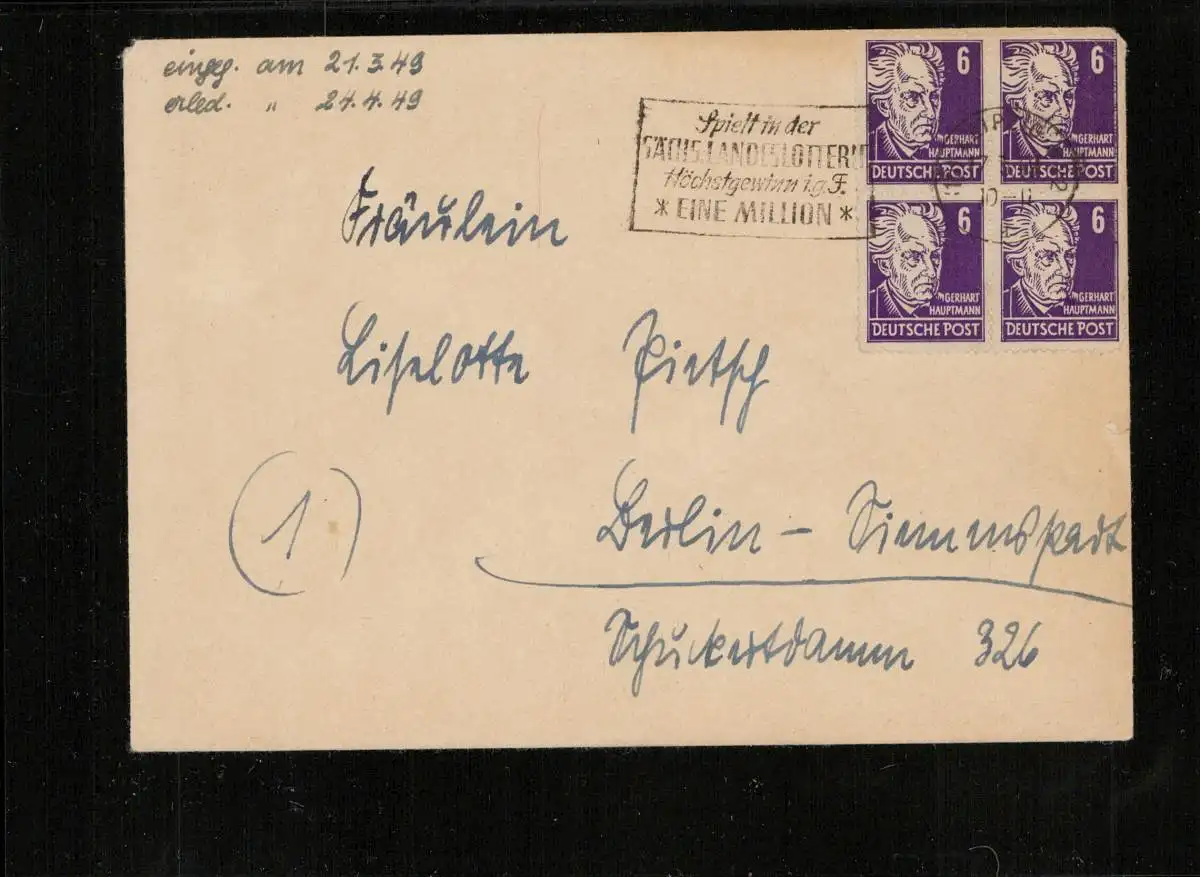 eingeg. am 21.3.49
erled. " 24.4.49
Spielt in der
SÄCHS. LANDESLOTTERIE
Höchstgewinn i.g.F.
* EINE MILLION *
6
GERHART
HAUPTMANN
DEUTSCHE POST
6
GERHART
HAUPTMANN
DEUTSCHE POST
10-11
6
GERHART
HAUPTMANN
DEUTSCHE POST
6
GERHART
HAUPTMANN
DEUTSCHE POST
Fräulein
Liselotte Pietsch
(1)
Berlin - Siemensstadt
Schuckertdamm 326